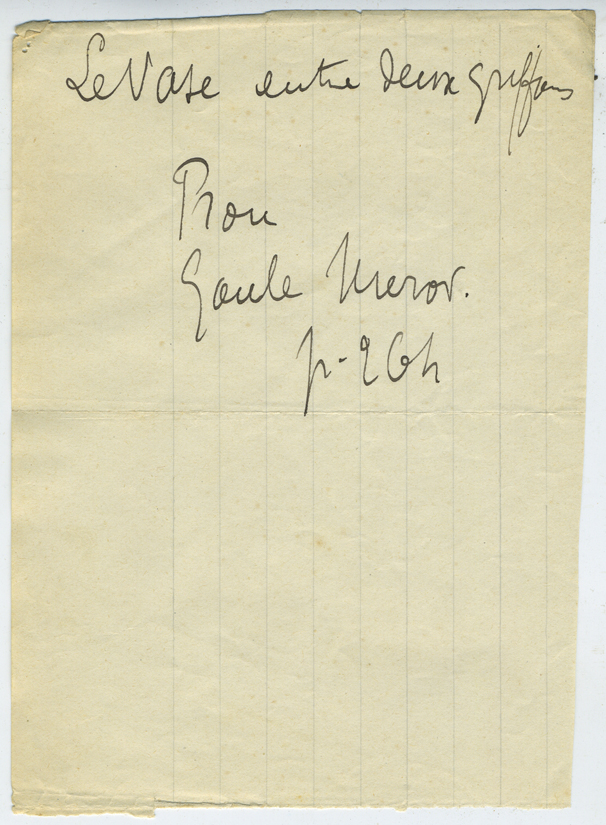 Le Vase entre deux griffons
Prou
Gaule Merov.
p. 264